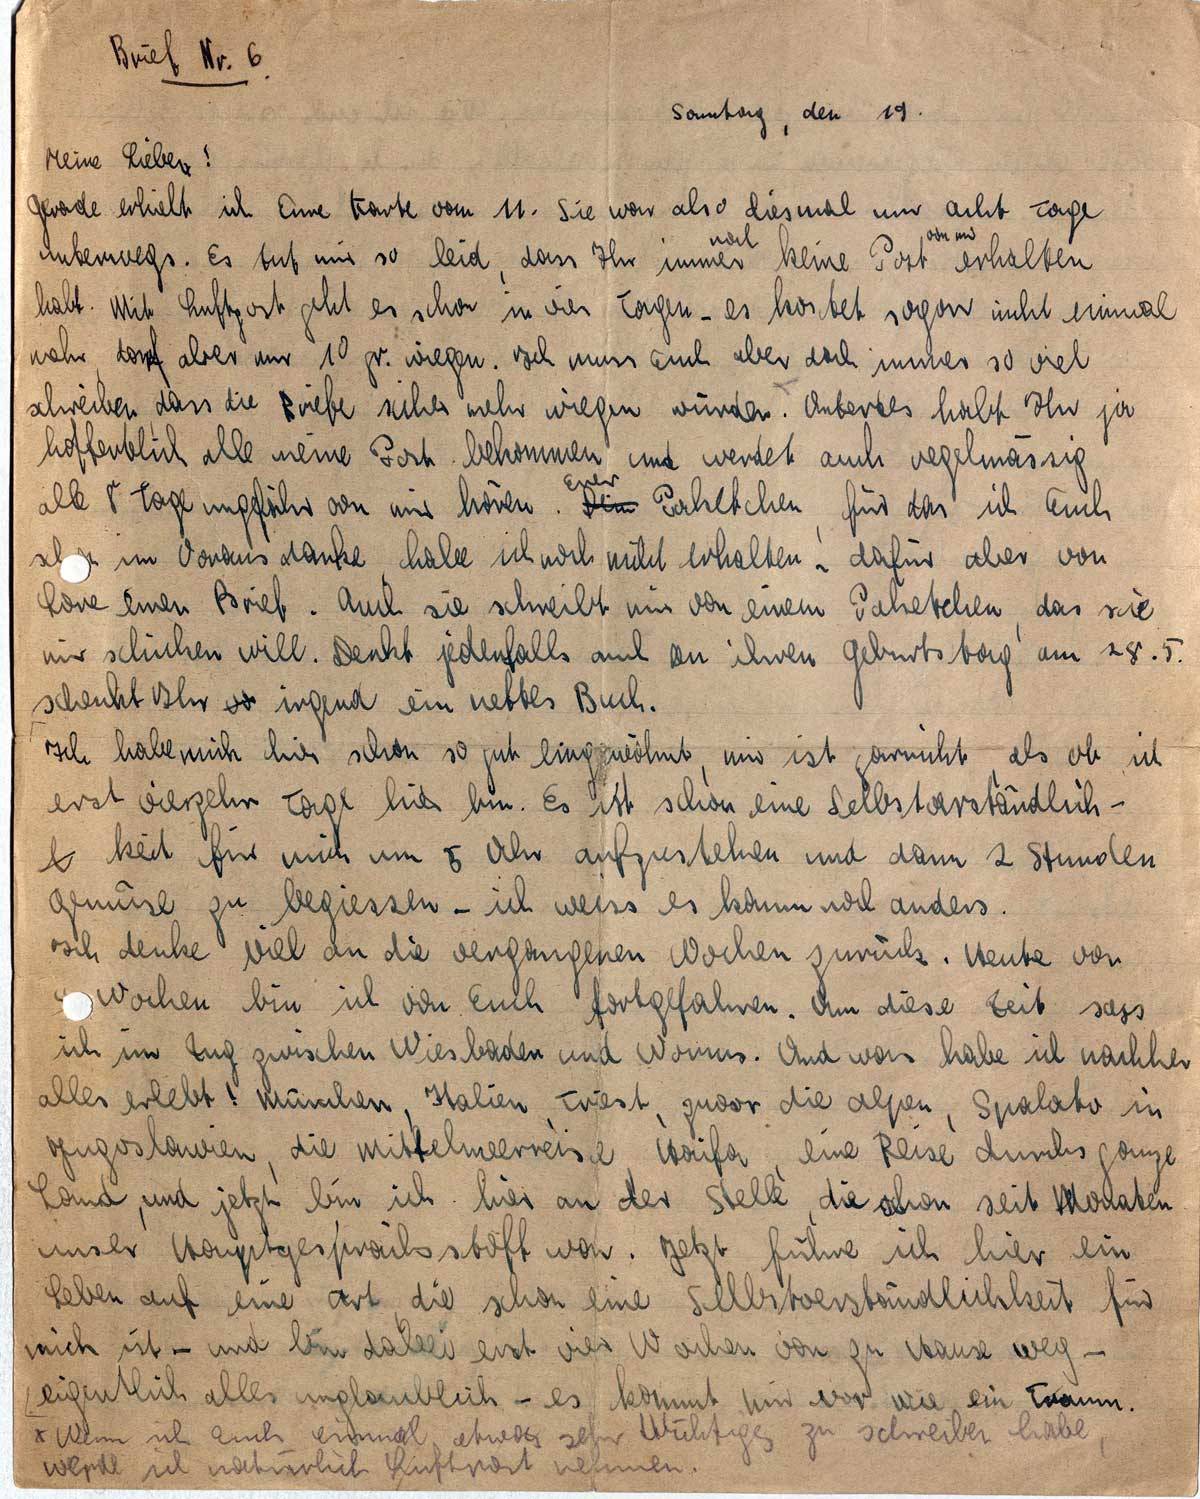 Brief Nr. 6
Samstag, den 19.
Meine Lieben!
Gerade erhielt ich Eure Karte vom 11. Sie war also diesmal nur acht Tage
unterwegs. Es tut mir so leid, dass Ihr immer noch keine Post von mir erhalten
habt. Mit Luftpost geht es schon in vier Tagen – es kostet sogar nicht einmal
mehr, darf aber nur 10 gr. wiegen. Ich muss Euch aber doch immer so viel
schreiben, dass die Briefe sicher mehr wiegen würden. Unterdes habt Ihr ja
hoffentlich alle meine Post bekommen und werdet auch regelmässig
alle 8 Tage ungefähr von mir hören. Euer Paketchen, für das ich Euch
schon im Voraus danke, habe ich noch nicht erhalten, dafür aber von
Lore einen Brief. Auch sie schreibt mir von einem Paketchen, das sie
mir schicken will. Denkt jedenfalls auch an ihren Geburtstag am 28.5.
schenkt Ihr irgend ein nettes Buch.
Ich habe mich hier schon so gut eingewöhnt, mir ist garnicht als ob ich
erst vierzehn Tage hier bin. Es ist schon eine Selbstverständlich-
keit für mich um 5 Uhr aufzustehen und dann 2 Stunden
Gemüse zu begiessen – ich weiss es kaum noch anders.
Ich denke viel an die vergangenen Wochen zurück. Heute vor
Wochen bin ich von Euch fortgefahren. Um diese Zeit sass
ich im Zug zwischen Wiesbaden und Worms. Und was habe ich nachher
alles erlebt! München, Italien, Triest, zuvor die Alpen, Spalato in
Jugoslawien, die Mittelmeerreise, Haifa, eine Reise durchs ganze
Land, und jetzt bin ich hier an der Stelle, die schon seit Monaten
unser Hauptgesprächsstoff war. Jetzt führe ich hier ein
Leben auf eine Art, die schon eine Selbstverständlichkeit für
mich ist – und bin dabei erst vier Wochen von zu Hause weg –
eigentlich alles unglaublich – es kommt mir vor wie ein Traum.
x Wenn ich Euch einmal etwas sehr Wichtiges zu schreiben habe,
werde ich natürlich Luftpost nehmen.